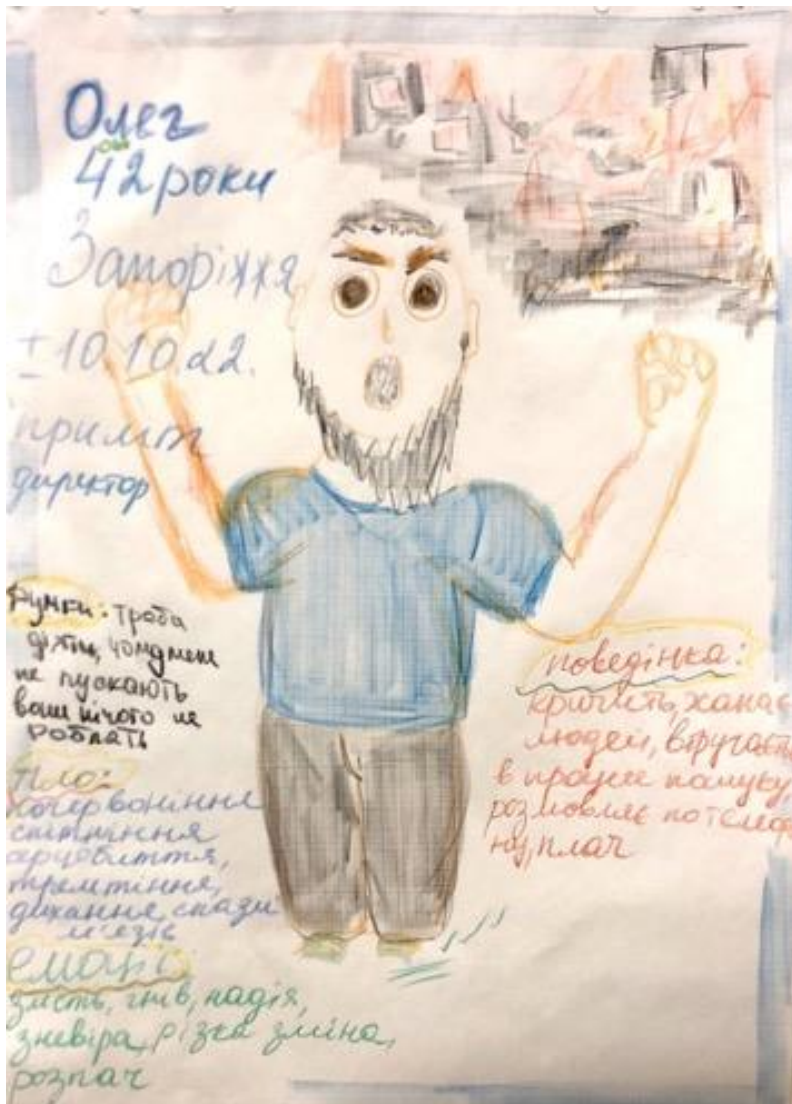 Олег
42 роки
Запоріжжя
± 10.10.22.
приліт
директор
Думки: треба
діяти, чому мене
не пускають
вони нічого не
роблять
Тіло:
почервоніння
серцебиття,
тремтіння,
дихання спазм
м'язів
Емоції
злість, гнів, надія,
зневіра, різка зміна,
розпач
поведінка:
кричить, хапає
людей, втручається
в процес пошуку,
розмовляє по телефо
ну, плач